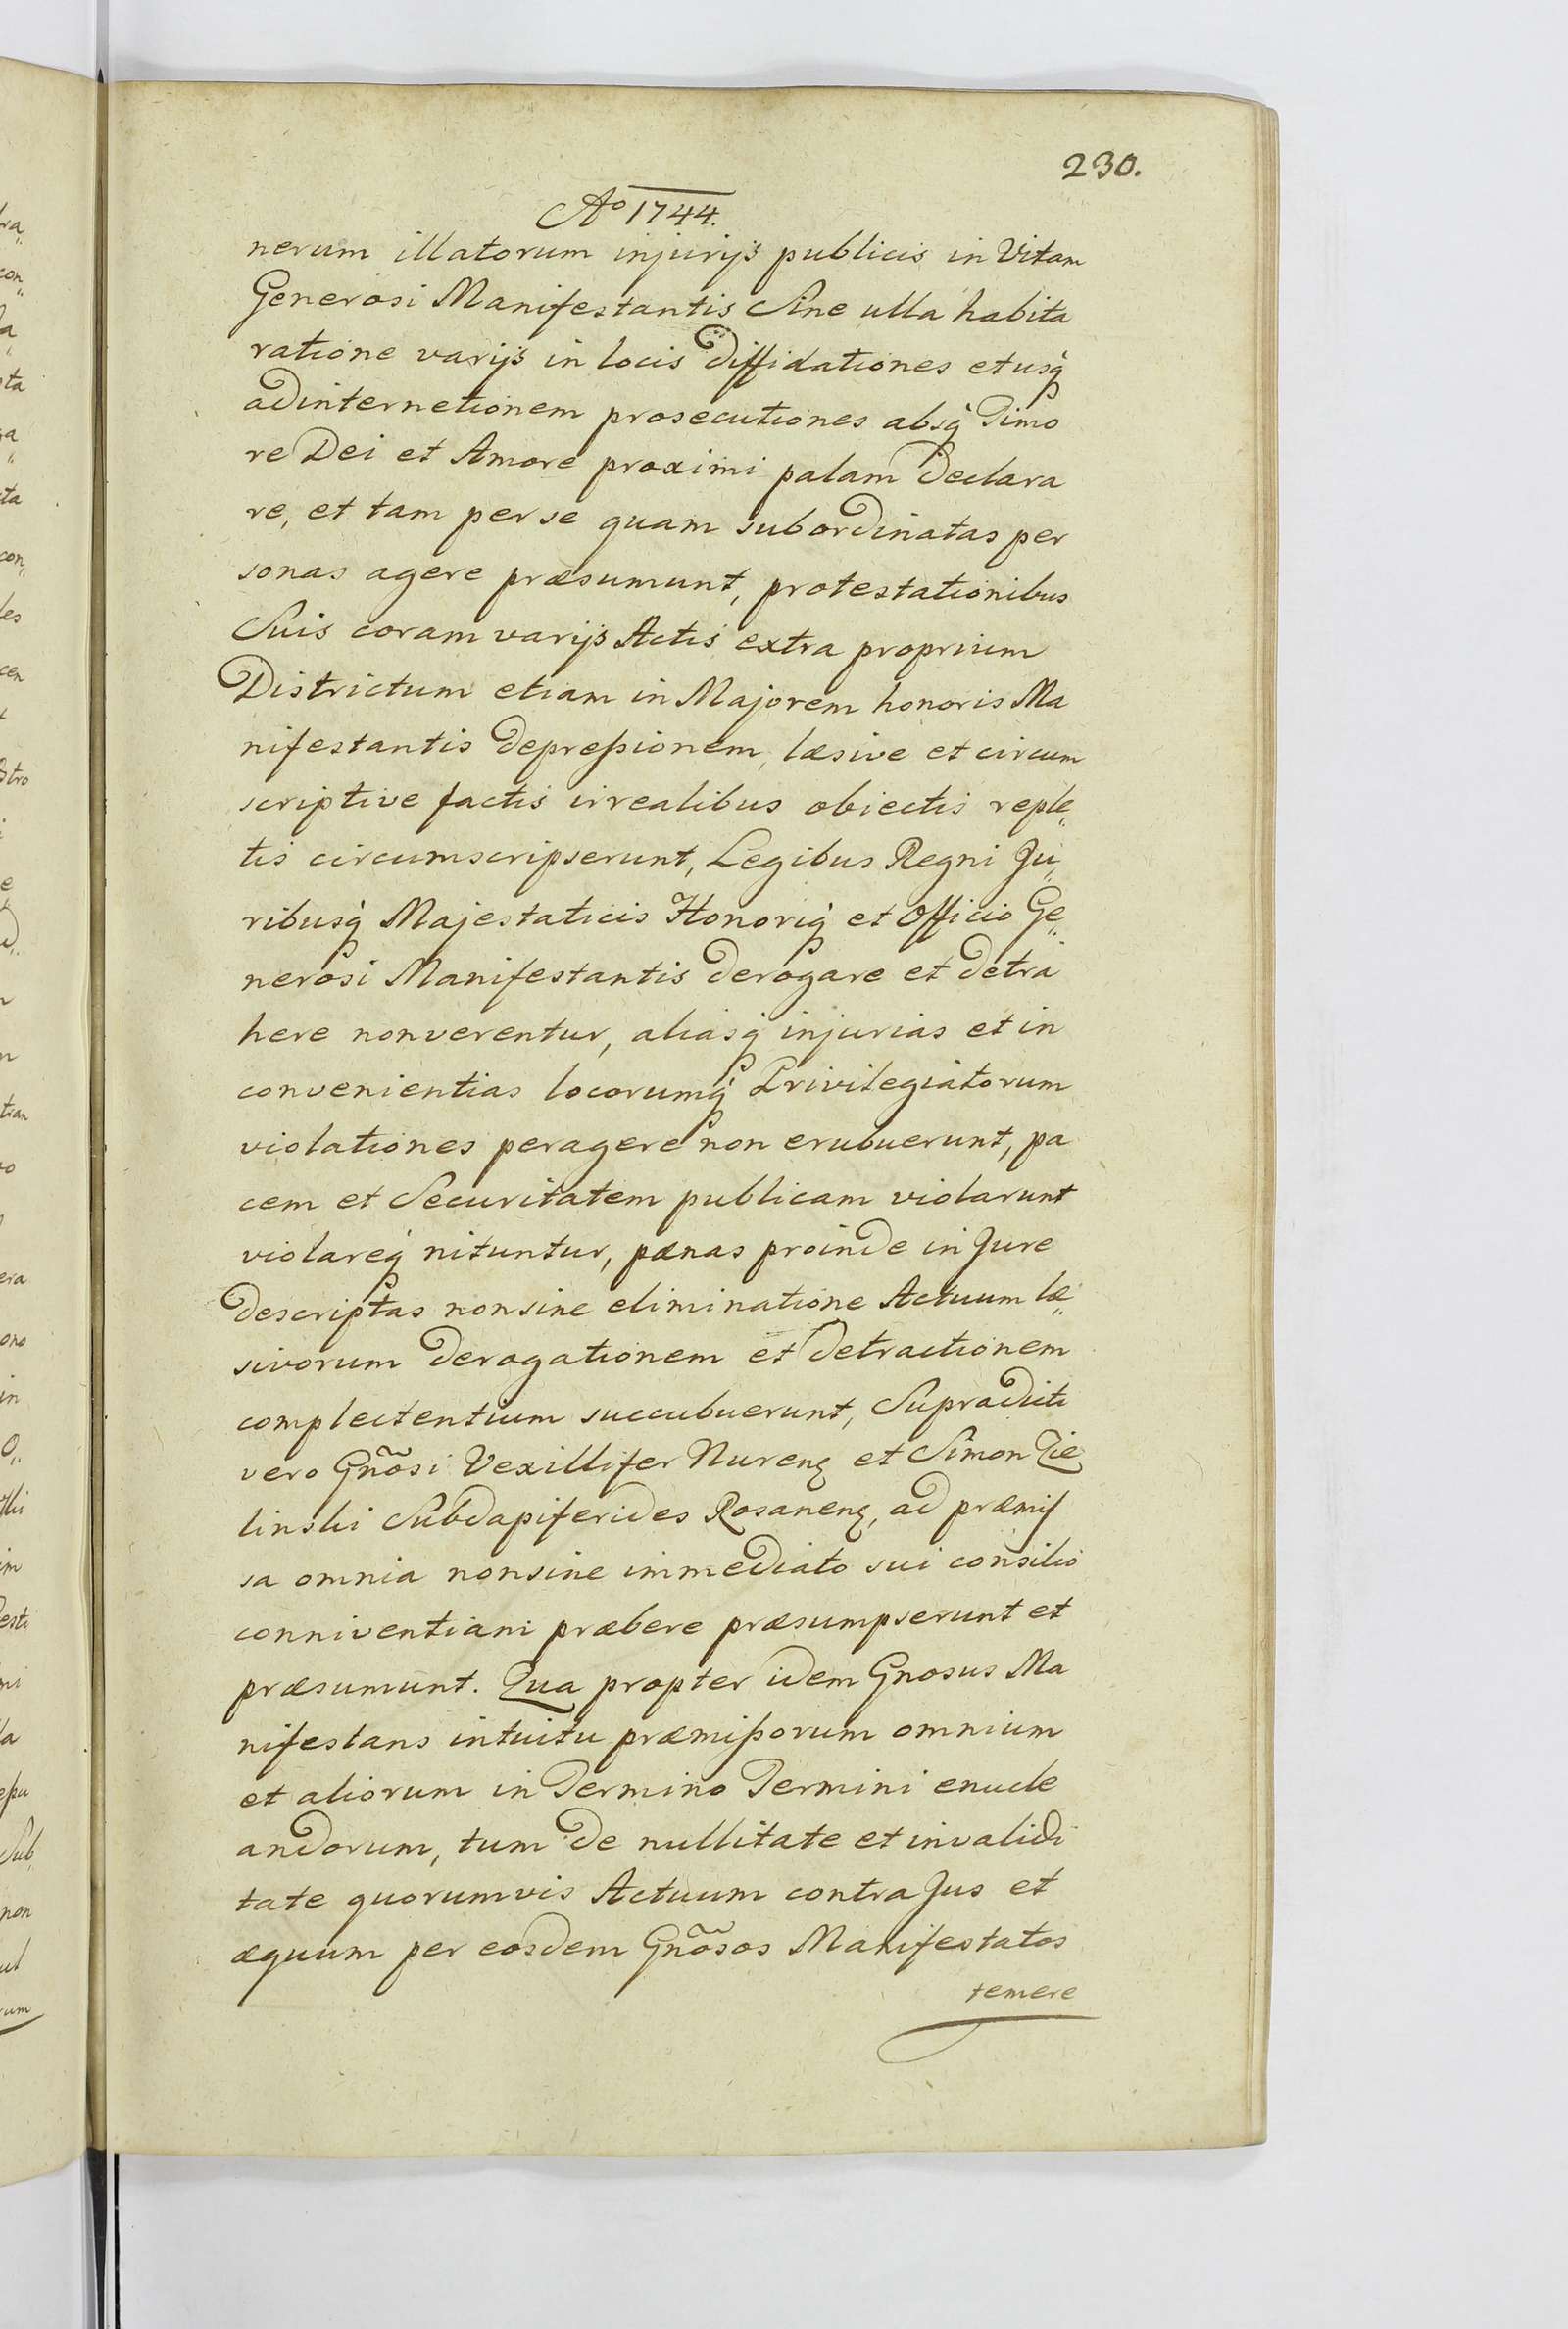 230.
Ao 1744.
nerum illatorum injurijs publicis in Vitam
Generosi Manifestantis Sine ulla habita
ratione varijs in locis Diffidationes et usq̀
adinternetionem prosecutiones absq̀ Timo
re Dei et Amore proximi palam Declara
re, et tam per se quam subordinatas per
sonas agere præsumunt, protestationibus
Suis coram varijs Actis extra proprium
Districtum etiam in Majorem honoris Ma
nifestantis depreßionem, læsive et circum
scriptive factis irrealibus obiectis reple„
tis circumscripserunt, Legibus Regni Ju„
ribusq̀ Majestaticis Honoriq̀ et Officio Ge„
nerosi Manifestantis derogare et detra
here nonverentur, aliasq̀ injurias et in
convenientias locorumq̀ Privilegiatorum
violationes peragere non erubuerunt, pa
cem et Securitatem publicam violarunt
violareq̀ nituntur, pænas proinde in Jure
descriptas nonsine eliminatione Actuum læ„
sivorum derogationem et detractionem
complectentium succubuerunt, Supradicti
vero Gñosi Vexillifer Nurenę et Simon Zie
linski Subdapiferides Rosanenę, ad præmis
sa omnia nonsine immediato sui consilio
conniventiam præbere præsumpserunt et
præsumunt. Qua propter idem Gnosus Ma
nifestans intuitu præmißorum omnium
et aliorum in Termino Termini enucle
andorum, tum de nullitate et invalidi
tate quorumvis Actuum contra Jus et
æquum per eosdem Gñosos Manifestatos
temere